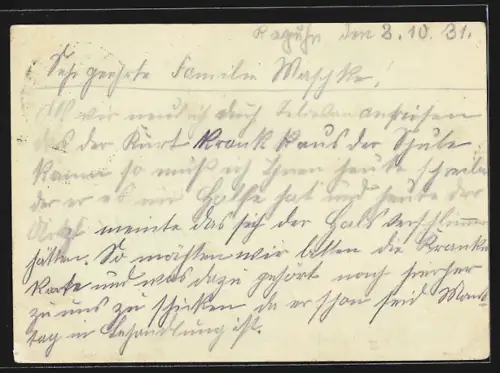 Raguhn den 3.10.31.
Sehr geehrte Familie Maschke!
Als wir neulich durch Telefon anwiesen
das der Kurt krank aus der Schule
kam so muß ich Ihnen heute schreiben
der er es mit Halse hat und heute der
Arzt meinte das sich der Hals verschlimmert
hätten. So möchten wir bitten die Kranken
Karte und was dazu gehört noch hierher
zu uns zu schicken da er schon seid Mon
tag in Behandlung ist.